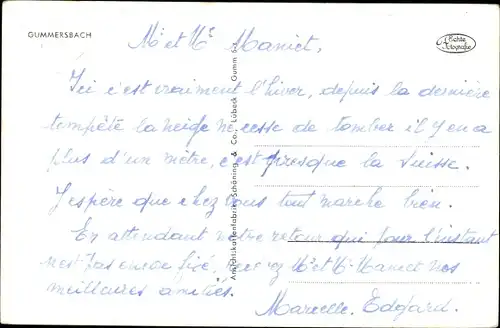 GUMMERSBACH
Echte Fotografie
Mr et Me Maniet,
Ici c'est vraiment l'hiver, depuis la dernière
tempête la neige ne cesse de tomber il y en a
plus d'un mètre, c'est presque la Suisse.
J'espère que chez vous tout marche bien.
En attendant notre retour qui pour l'instant
n'est pas encore fixé, recevez Mr et Me Maniet nos
meilleures amitiés.
Marcelle. Edgard.
Ansichtskartenfabrik Schöning & Co., Lübeck Gumm